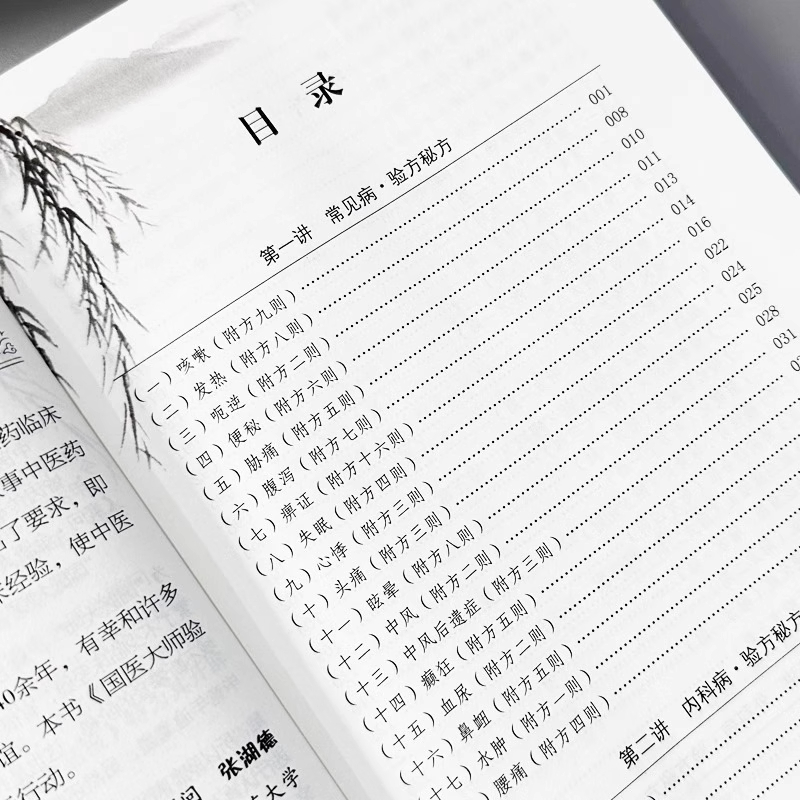 药临床
事中医药
了要求，即
经验，使中医
0余年，有幸和许多
谊。本书《国医大师验
行动。
张湖德
大学
目 录
第一讲 常见病·验方秘方
（一）咳嗽（附方九则） 001
（二）发热（附方八则） 008
（三）呃逆（附方二则） 010
（四）便秘（附方六则） 011
（五）胁痛（附方五则） 013
（六）腹泻（附方七则） 014
（七）痹证（附方十六则） 016
（八）失眠（附方四则） 022
（九）心悸（附方三则） 024
（十）头痛（附方三则） 025
（十一）眩晕（附方八则） 028
（十二）中风（附方二则） 031
（十三）中风后遗症（附方三则）
（十四）癫狂（附方五则）
（十五）血尿（附方二则）
（十六）鼻衄（附方五则）
（十七）水肿（附方一则）
腰痛（附方四则）
第二讲 内科病·验方秘方